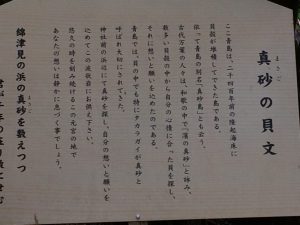 まさご
真砂の貝文
ここ青島は、二千四百年前の隆起海床に
貝殻が堆積してできた島である。
依って青島の別名「真砂島」とも云う。
古代万葉の人々は、和歌の中で「濱の真砂」と詠み、
数多い貝殻の中から自分の心情に合った貝を探し、
それに想いと願いを込めたのである。
青島では、貝の中でも特にタカラガイが真砂と
呼ばれ大切にされてきた。
神社前の浜辺にて真砂を探し自分の想いと願いを
込めてこの波状岩にお供え下さい。
悠久の時を刻み続けるこの元宮の地で
あなたの想いは静かに息づく事でしょう。
まさご
綿津見の浜の真砂を数えつつ
君が千年の在り数と せむ